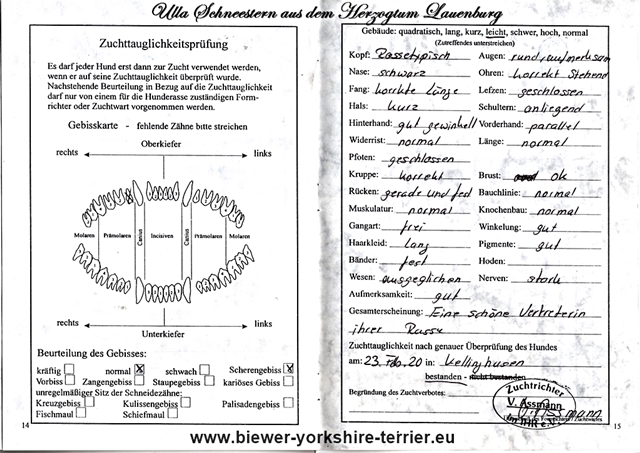 Ulla Schneestern aus dem Herzogtum Lauenburg
Zuchttauglichkeitsprüfung
Es darf jeder Hund erst dann zur Zucht verwendet werden,
wenn er auf seine Zuchttauglichkeit überprüft wurde.
Nachstehende Beurteilung in Bezug auf die Zuchttauglichkeit
darf nur von einem für die Hunderasse zuständigen Form-
richter oder Zuchtwart vorgenommen werden.
Gebisskarte - fehlende Zähne bitte streichen
Oberkiefer
rechts links
Molaren Prämolaren Canius Incisiven Canius Prämolaren Molaren
rechts links
Unterkiefer
Beurteilung des Gebisses:
kräftig normal X schwach Scherengebiss X
Vorbiss Zangengebiss Staupegebiss kariöses Gebiss
unregelmäßiger Sitz der Schneidezähne:
Kreuzgebiss Kulissengebiss Palisadengebiss
Fischmaul Schiefmaul
14
Gebäude: quadratisch, lang, kurz, leicht, schwer, hoch, normal
(Zutreffendes unterstreichen)
Kopf: Rassetypisch Augen: rund, aufmerksam
Nase: schwarz Ohren: korrekt stehend
Fang: korrekte Länge Lefzen: geschlossen
Hals: kurz Schultern: anliegend
Hinterhand: gut gewinkelt Vorderhand: parallel
Widerrist: normal Länge: normal
Pfoten: geschlossen
Kruppe: korrekt Brust: ok
Rücken: gerade und fest Bauchlinie: normal
Muskulatur: normal Knochenbau: normal
Gangart: frei Winkelung: gut
Haarkleid: lang Pigmente: gut
Bänder: fest Hoden:
Wesen: ausgeglichen Nerven: stark
Aufmerksamkeit: gut
Gesamterscheinung: Eine schöne Vertreterin
ihrer Rasse
Zuchttauglichkeit nach genauer Überprüfung des Hundes
am: 23. Feb. 20 in: Kellinghusen
bestanden - nicht bestanden
Begründung des Zuchtverbotes:
Zuchtrichter
V. Assmann
im IHR e.V.
15
www.biewer-yorkshire-terrier.eu